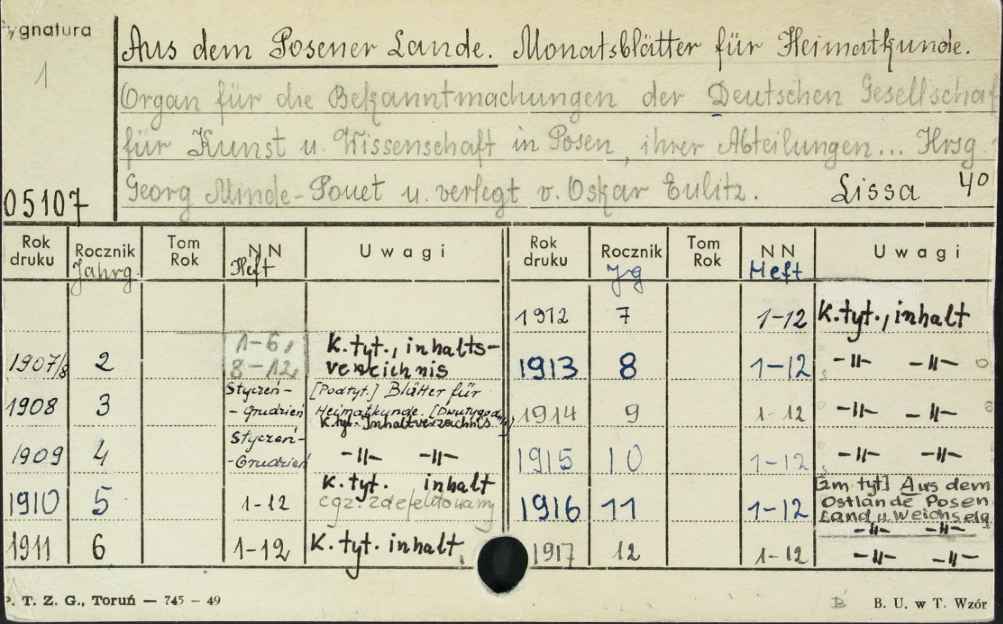 Sygnatura
1
05107
Aus dem Posener Lande. Monatsblätter für Heimatkunde.
Organ für die Bekanntmachungen der Deutschen Gesellschaf
für Kunst u. Wissenschaft in Posen, ihrer Abteilungen... Hrsg
Georg Minde-Pouet u. verlegt v. Oskar Eulitz. Lissa 4°
Rok druku Rocznik Jahrg. Tom Rok NN Heft Uwagi
1907/8 2 1-6, 8-12, K.tyt., inhalts-verzeichnis
1908 3 Styczeń-Grudzień [Podtyt.] Blätter für Heimatkunde. K.tyt. Inhaltverzeichnis
1909 4 Styczeń-Grudzień -"- -"-
1910 5 1-12 K.tyt. inhalt egz. zdefektowany
1911 6 1-12 K.tyt. inhalt
Rok druku Rocznik Jg Tom Rok NN Heft Uwagi
1912 7 1-12 K.tyt., inhalt
1913 8 1-12 -"- -"-
1914 9 1-12 -"- -"-
1915 10 1-12 -"- -"-
1916 11 1-12 [Zm tyt] Aus dem Ostlande Posen Land u. Weichselg -"- -"-
1917 12 1-12 -"- -"-
P. T. Z. G., Toruń — 745 - 49
B. U. w T. Wzór